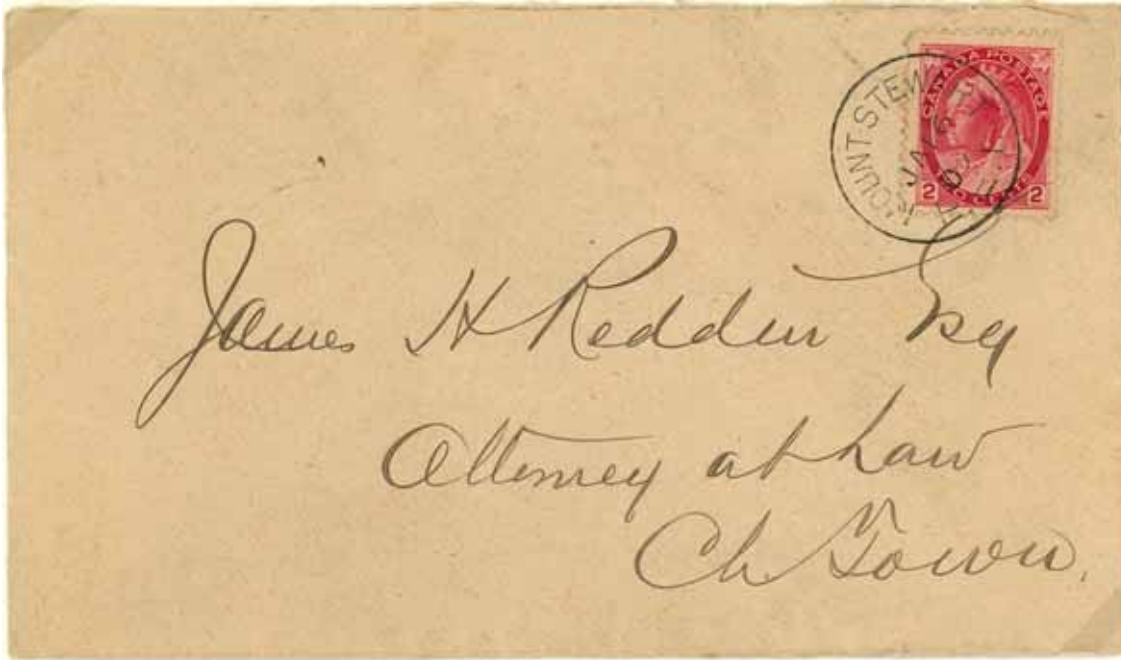 CANADA POSTAGE
2 CENTS 2
MOUNT STEW
JA 6
James H Reddin Esq
Attorney at Law
Ch Town.